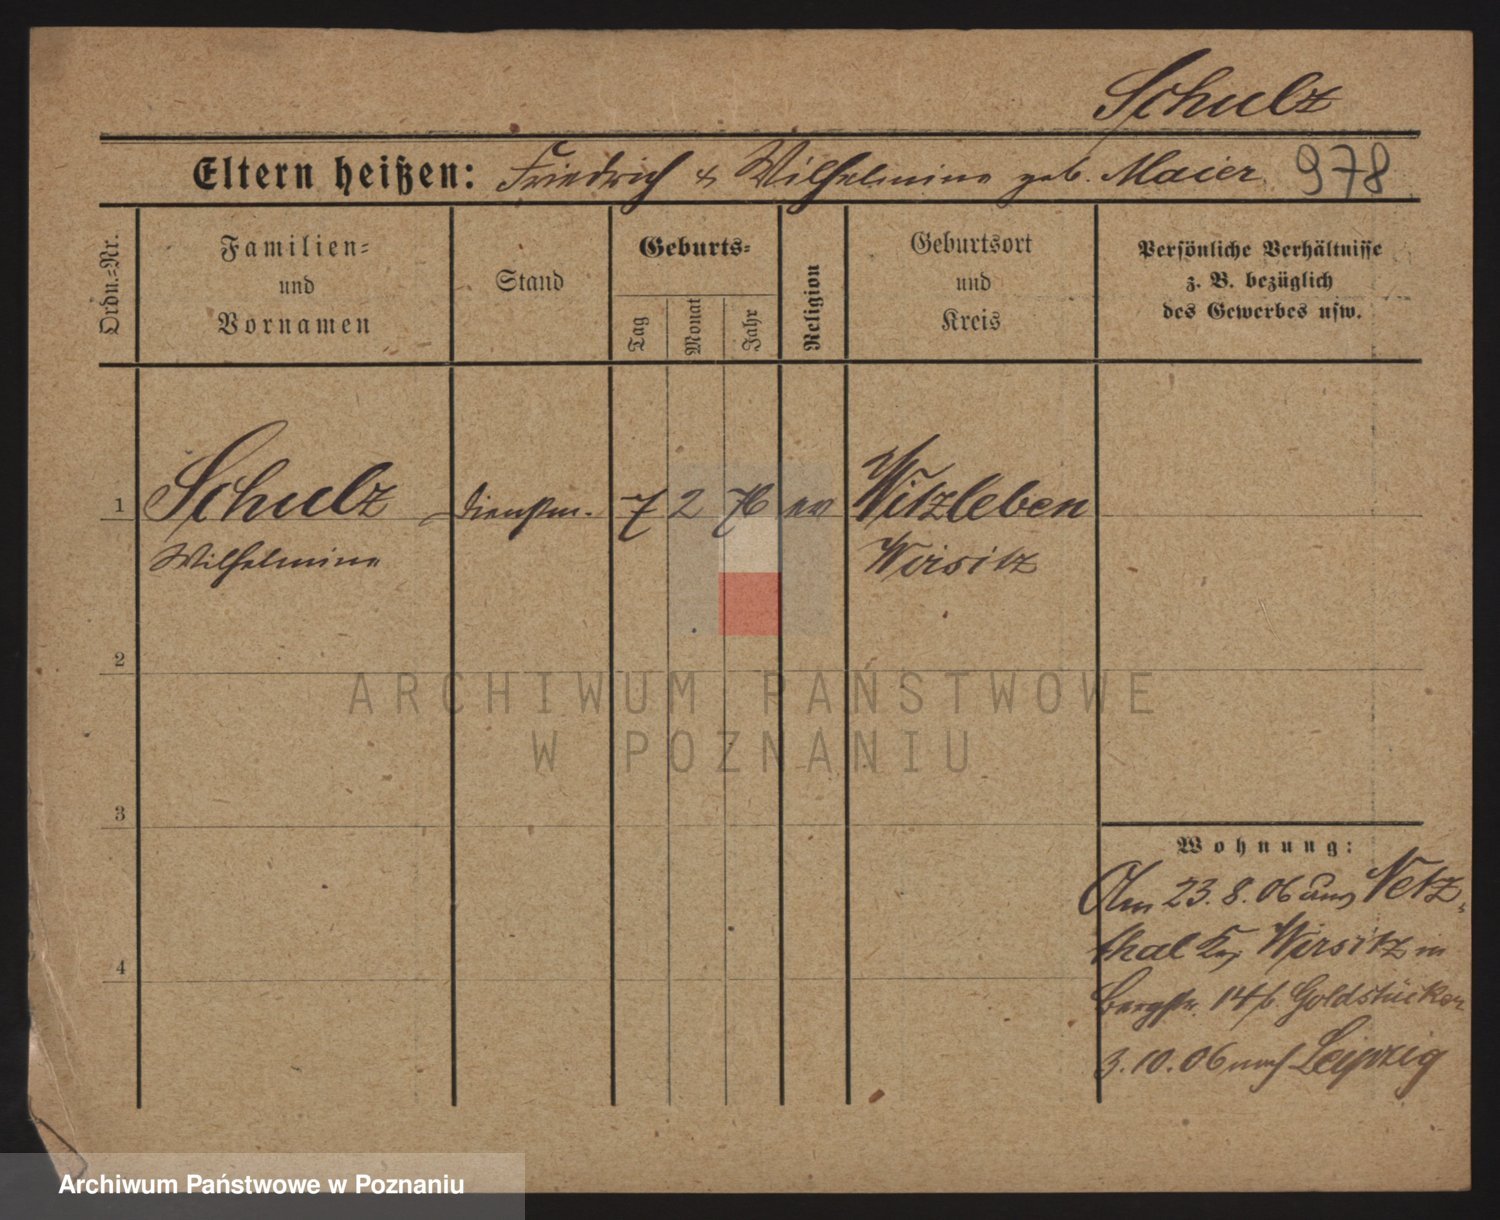 Schulz
Eltern heißen: Friedrich & Wilhelmine geb. Maier 978
Ordn.=Nr.
Familien=
und
Vornamen
Stand
Geburts=
Tag
Monat
Jahr
Religion
Geburtsort
und
Kreis
Persönliche Verhältnisse
z. B. bezüglich
des Gewerbes usw.
1 Schulz Dienstm. 7 2 76 ev Witzleben
Wilhelmine Wirsitz
2
ARCHIWUM PAŃSTWOWE
W POZNANIU
3
Wohnung:
Am 23.8.06 aus Netz=
thal Kr. Wirsitz in
4
Bergstr. 14 b. Goldstücker
3.10.06 nach Leipzig
Archiwum Państwowe w Poznaniu